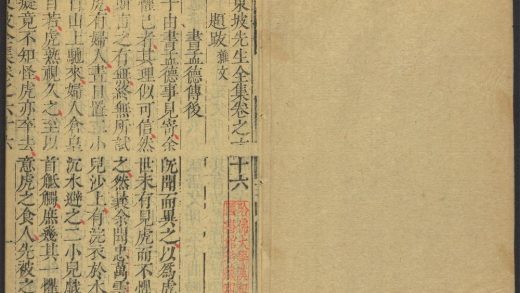 東坡先生全集卷之六十六
題跋 雜文
書孟德傳後
子由書孟德事見寄余既聞而異之以為虎
懼己者其理似可信然世未有見虎而不懼
言之有無終無所試之然曩余聞忠萬雲
虎有婦人晝日置二小兒沙上而浣衣於水
自山上馳來婦人倉皇沉水避之二小兒戲
自若虎熟視久之至以首觝觸庶幾其一懼
癡竟不知怪虎亦卒去意虎之食人先被之
坡全集卷之六十六
哈佛大學漢和圖書館珍藏印